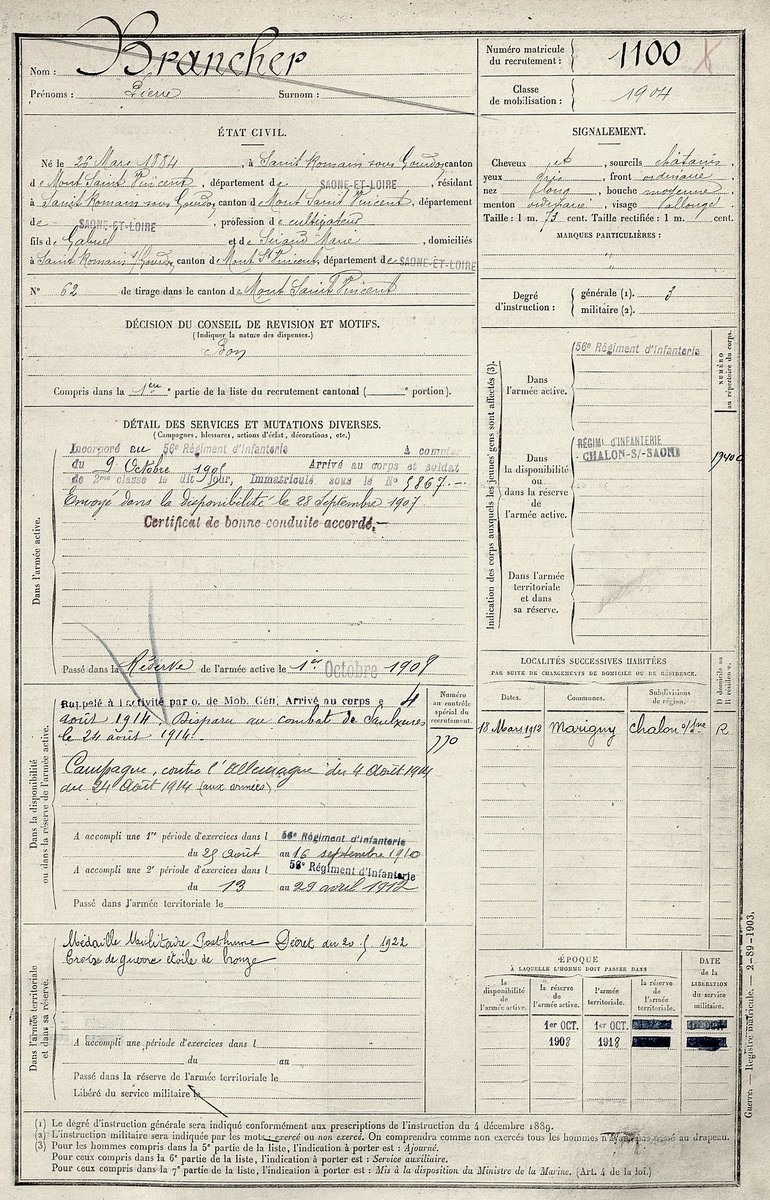 Nom : Brancher
Prénoms : Pierre Surnom :
Numéro matricule
du recrutement : 1100 X
Classe
de mobilisation : 1904
ÉTAT CIVIL.
Né le 26 Mars 1884, à Saint Romain sous Gourdon, canton
de Mont Saint Vincent, département de SAONE-ET-LOIRE, résidant
à Saint Romain sous Gourdon, canton de Mont Saint Vincent, département
de SAONE-ET-LOIRE, profession de cultivateur
fils de Gabriel et de Marie, domiciliés
à Saint Romain s/Gourdon, canton de Mont St Vincent, département de SAONE-ET-LOIRE
N° 62 de tirage dans le canton de Mont Saint Vincent
SIGNALEMENT.
Cheveux et, sourcils châtains,
yeux gris, front ordinaire
nez long, bouche moyenne,
menton ordinaire, visage allongé
Taille : 1 m. 73 cent. Taille rectifiée : 1 m. cent.
MARQUES PARTICULIÈRES :
"
"
Degré
d'instruction :
générale (1). 3
militaire (2).
DÉCISION DU CONSEIL DE REVISION ET MOTIFS.
(Indiquer la nature des dispenses.)
Bon
Compris dans la 1ère partie de la liste du recrutement cantonal ( e portion).
DÉTAIL DES SERVICES ET MUTATIONS DIVERSES.
(Campagnes, blessures, actions d'éclat, décorations, etc.)
Dans l'armée active.
Incorporé au 56e Régiment d'Infanterie à compter
du 9 Octobre 1905 Arrivé au corps et soldat
de 2me classe le dit jour, Immatriculé sous le N° 5867.-
Envoyé dans la disponibilité le 28 Septembre 1907
Certificat de bonne conduite accordé.-
Passé dans la Réserve de l'armée active le 1er Octobre 1908
Indication des corps auxquels les jeunes gens sont affectés (3).
NUMÉRO
au répertoire du corps.
Dans
l'armée active.
56e Régiment d'Infanterie
Dans
la disponibilité
ou
dans la réserve
de
l'armée active.
RÉGIM. D'INFANTERIE
- CHALON-S/-SAONE
Dans l'armée
territoriale
et dans
sa réserve.
LOCALITÉS SUCCESSIVES HABITÉES
PAR SUITE DE CHANGEMENTS DE DOMICILE OU DE RÉSIDENCE.
D domicile ou
R résidence.
Dates. Communes. Subdivisions
de région.
18 Mars 1912 Marigny Chalon s/Sne R
Dans la disponibilité
ou dans la réserve de l'armée active.
Numéro
au contrôle
spécial du
recrutement.
770
Rappelé à l'activité par o. de Mob. Gén. Arrivé au corps le 4
août 1914. Disparu au combat de Saulxures
le 24 août 1914.
Campagne, contre l'Allemagne du 4 Août 1914
au 24 Août 1914 (aux armées)
A accompli une 1re période d'exercices dans l 56e Régiment d'Infanterie
du 25 août au 16 septembre 1910
A accompli une 2e période d'exercices dans l 56e Régiment d'Infanterie
du 13 au 29 avril 1912
Passé dans l'armée territoriale le
Dans l'armée territoriale
et dans sa réserve.
Médaille Militaire Posthume Décret du 20. 1922
Croix de guerre étoile de bronze
A accompli une période d'exercices dans l
du au
Passé dans la réserve de l'armée territoriale le
Libéré du service militaire le
ÉPOQUE
À LAQUELLE L'HOMME DOIT PASSER DANS
DATE
de la
LIBÉRATION
du service
militaire.
la
disponibilité
de
l'armée active.
la réserve
de
l'armée active.
l'armée
territoriale.
la réserve
de
l'armée
territoriale.
1er OCT. 1er OCT.
1908 1918
Guerre. — Registre matricule. — 2-89-1903.
(1) Le degré d'instruction générale sera indiqué conformément aux prescriptions de l'instruction du 4 décembre 1889.
(2) L'instruction militaire sera indiquée par les mots : exercé ou non exercé. On comprendra comme non exercés tous les hommes n'ayant pas passé au drapeau.
(3) Pour les hommes compris dans la 5e partie de la liste, l'indication à porter est : Ajourné.
Pour ceux compris dans la 6e partie de la liste, l'indication à porter est : Service auxiliaire.
Pour ceux compris dans la 7e partie de la liste, l'indication à porter est : Mis à la disposition du Ministre de la Marine. (Art. 4 de la loi.)